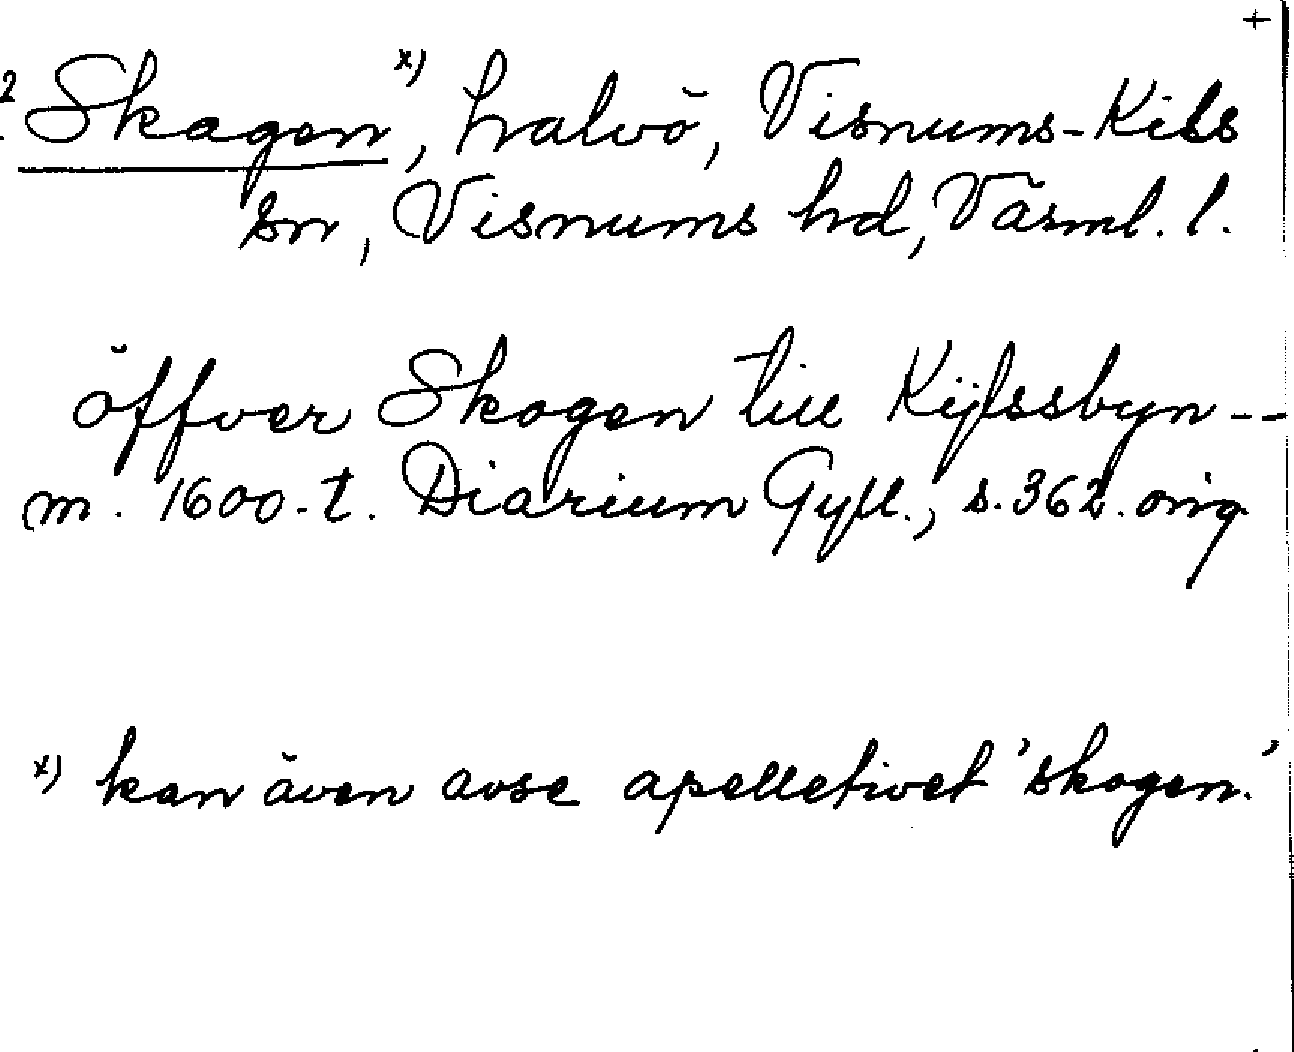 +
2 Skagen x), halvö, Visnums-Kils
sn, Visnums hd, Värml. l.
öffver Skogen till Kijlssbyn --
m. 1600-t. Diarium Gyll., s. 362. orig.
x) kan även avse apelletivet 'skogen.'